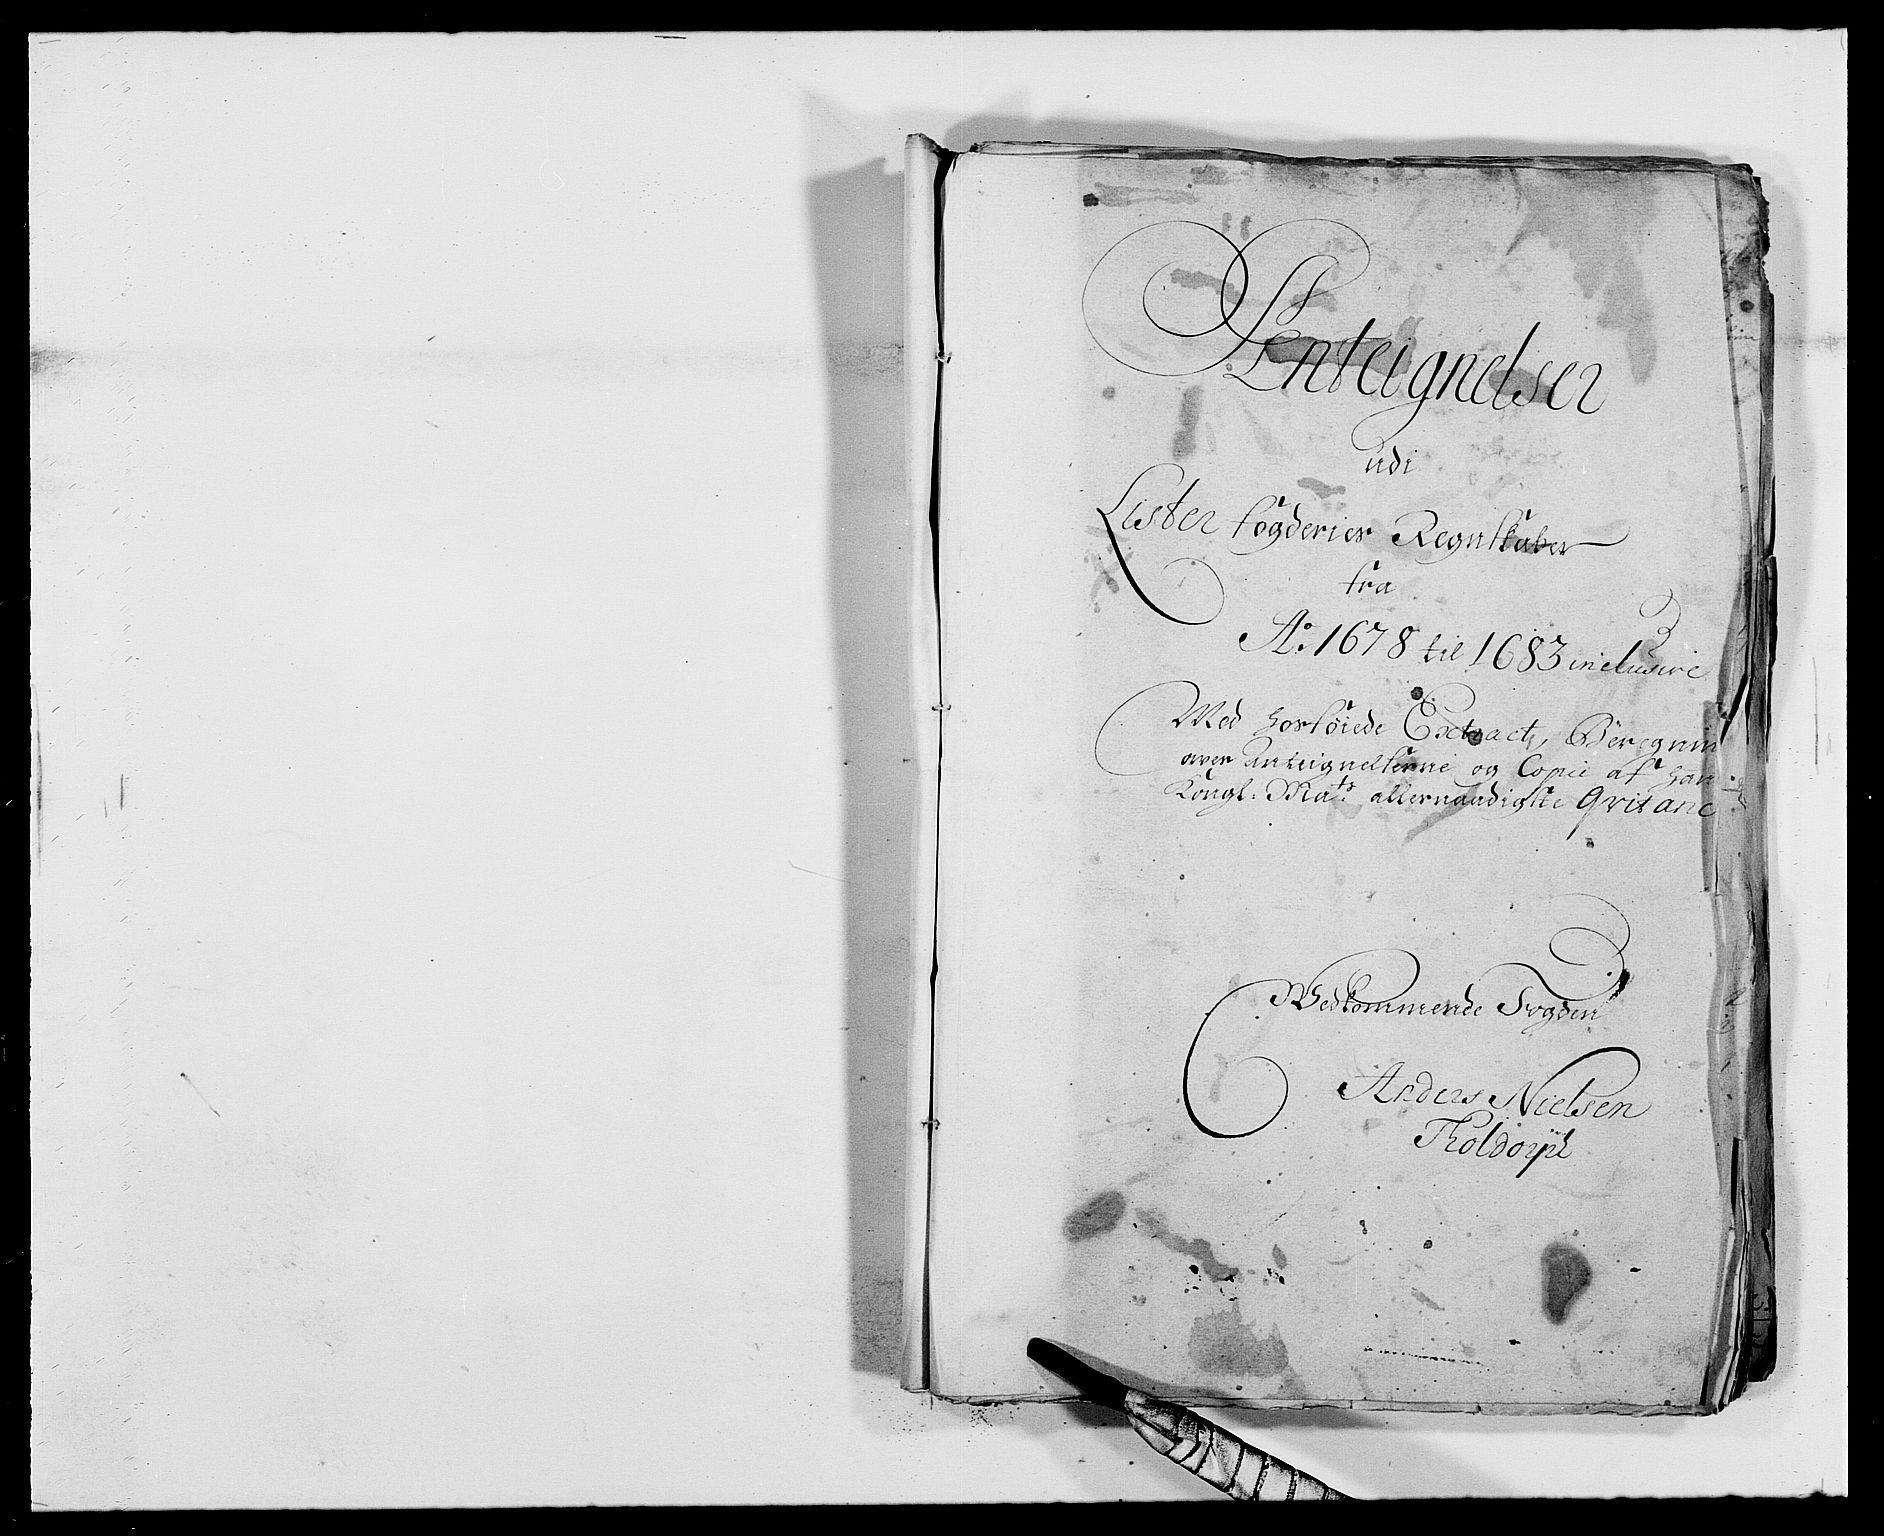 Anteignelser
udi
Lister fogderies Regnskaber
fra
Ao: 1678 til 1683 inclusive
Med hosføiede Extract, Beregnin
over Anteignelserne og Copie af Han
Kongl: Mats: allernaadigste Qvitanc
Vedkommende Fogden
Anders Nielsen
Tholdorph